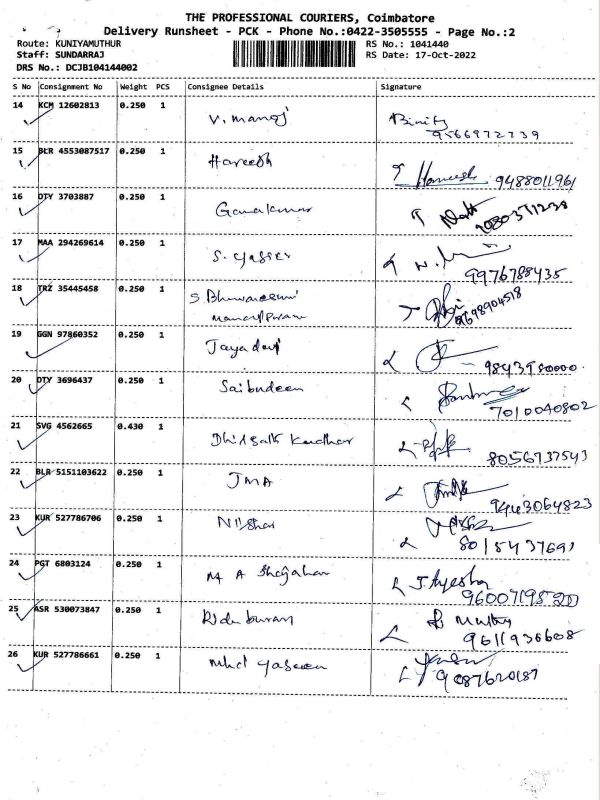 THE PROFESSIONAL COURIERS, Coimbatore
Delivery Runsheet - PCK - Phone No.:0422-3505555 - Page No.:2
Route: KUNIYAMUTHUR
Staff: SUNDARRAJ
DRS No.: DCJB104144002
RS No.: 1041440
RS Date: 17-Oct-2022
S No Consignment No Weight PCS Consignee Details Signature
14 KCM 12602813 0.250 1 V. Manoj
9566972739
15 BLR 4553087517 0.250 1 Hareesh
9488011961
16 DTY 3703887 0.250 1
17 MAA 294269614 0.250 1 S.
9976788435
18 TRZ 35445458 0.250 1 S.
9698904518
19 GGN 97860352 0.250 1 Jayadevi
9843980000
20 DTY 3696437 0.250 1 Saibudeen
7010040802
21 SVG 4562665 0.430 1
8056737543
22 BLR 5151103622 0.250 1 JMA
9443064823
23 KUR 527786706 0.250 1 Nishar
8015437691
24 PGT 6803124 0.250 1 M A Shajahan
J. Ayesha
25 ASR 530073847 0.250 1
9611936608
26 KUR 527786661 0.250 1 Mhd yaseen
9087620187